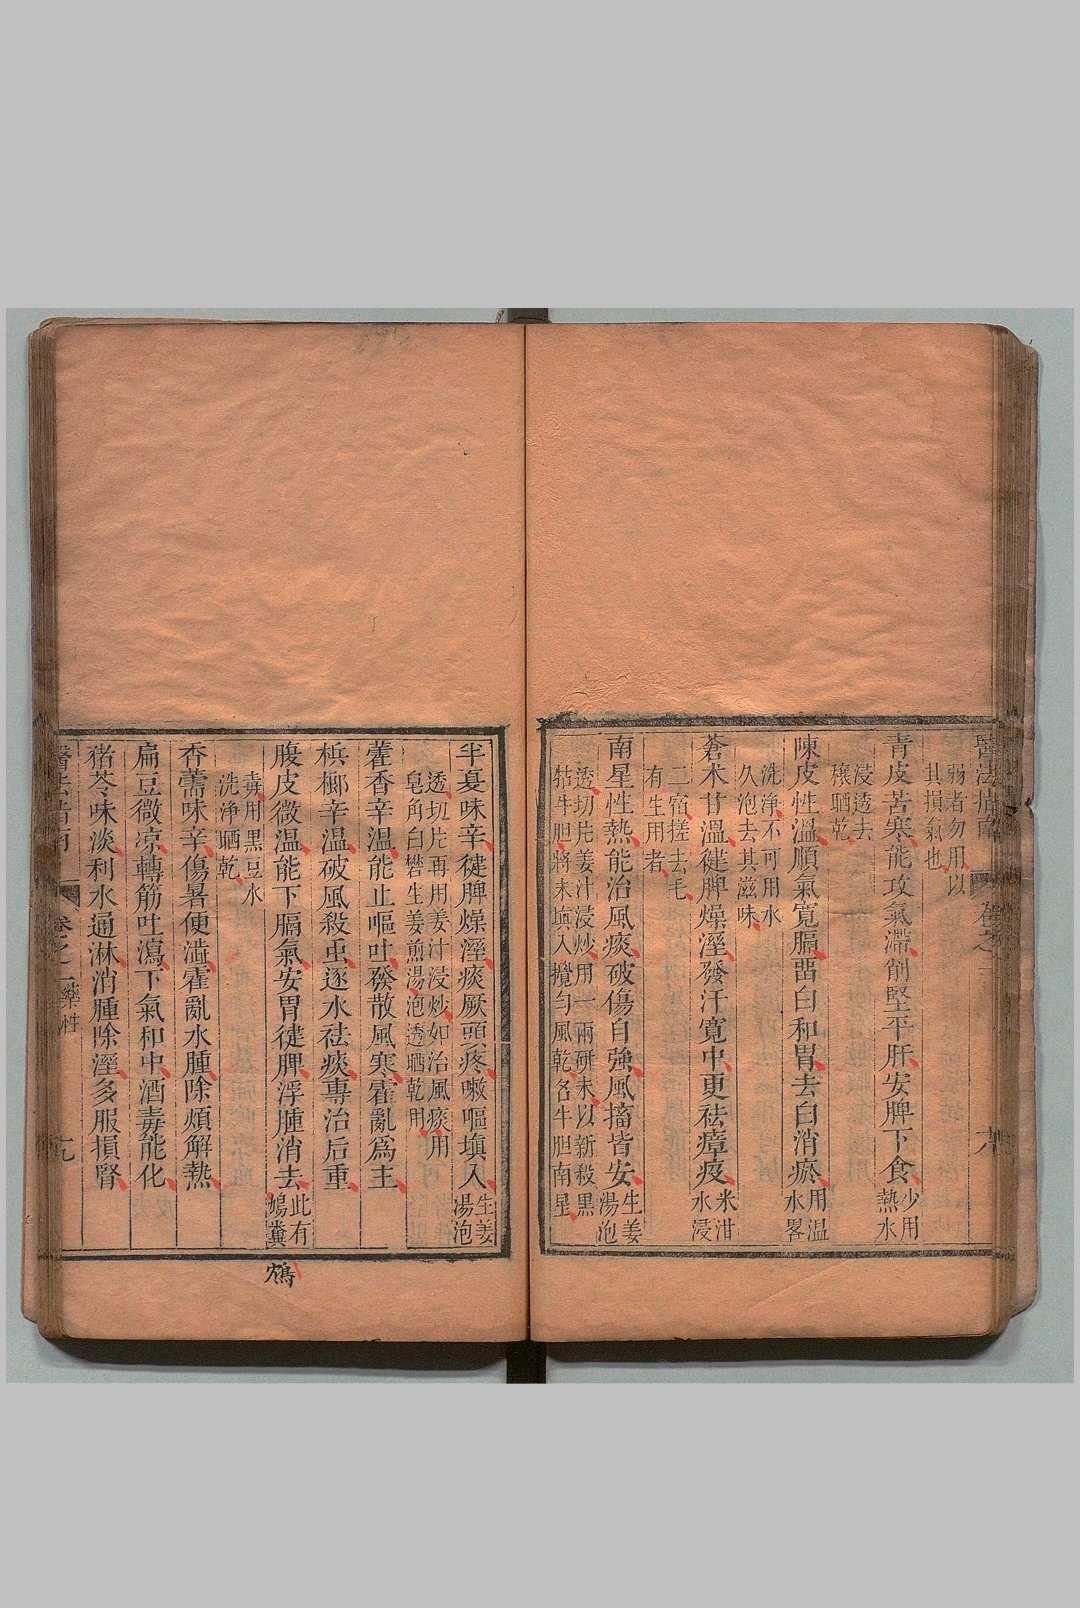 弱者勿用以
其損氣也
青皮苦寒能攻氣滯削堅平肝安脾下食少用熱水
浸透去
穰晒乾
陳皮性溫順氣寬膈畱白和胃去白消瘀用温水畧
洗淨不可用水
久泡去其滋味
蒼朮甘溫健脾燥溼發汗寬中更祛瘴疫米泔水浸
二宿搓去毛
有生用者
南星性熱能治風痰破傷自強風搐皆安生姜湯泡
透切片姜汁浸炒用一兩研末以新殺黑
牯牛胆將末塡入攪勻風乾名牛胆南星
半夏味辛健脾燥溼痰厥頭疼嗽嘔塡入生姜湯泡
透切片再用姜汁浸炒如治風痰用
皂角白礬生姜煎湯泡透晒乾用
藿香辛溫能止嘔吐發散風寒霍亂爲主
梹榔辛溫破風殺虫逐水祛痰專治后重
腹皮微溫能下膈氣安胃健脾浮腫消去此有鳩糞
鶴
毒用黑豆水
洗淨晒乾
香薷味辛傷暑便澁霍亂水腫除煩解熱
扁豆微凉轉筋吐瀉下氣和中酒毒能化
猪苓味淡利水通淋消腫除溼多服損腎
卷之一藥性